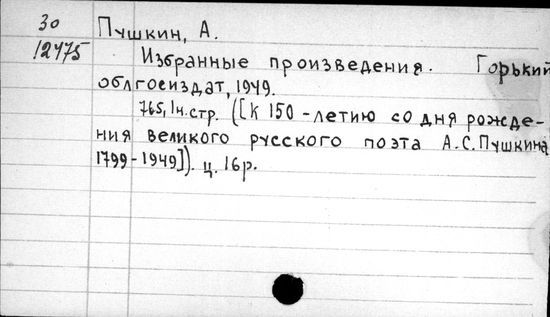 30
12475
Пушкин, А.
Избранные произведения. Горький
облгосиздат, 1949.
765, 1ч. стр. ([К 150-летию со дня рожде-
ния великого русского поэта А.С. Пушкина
1799-1949]). ц. 16р.